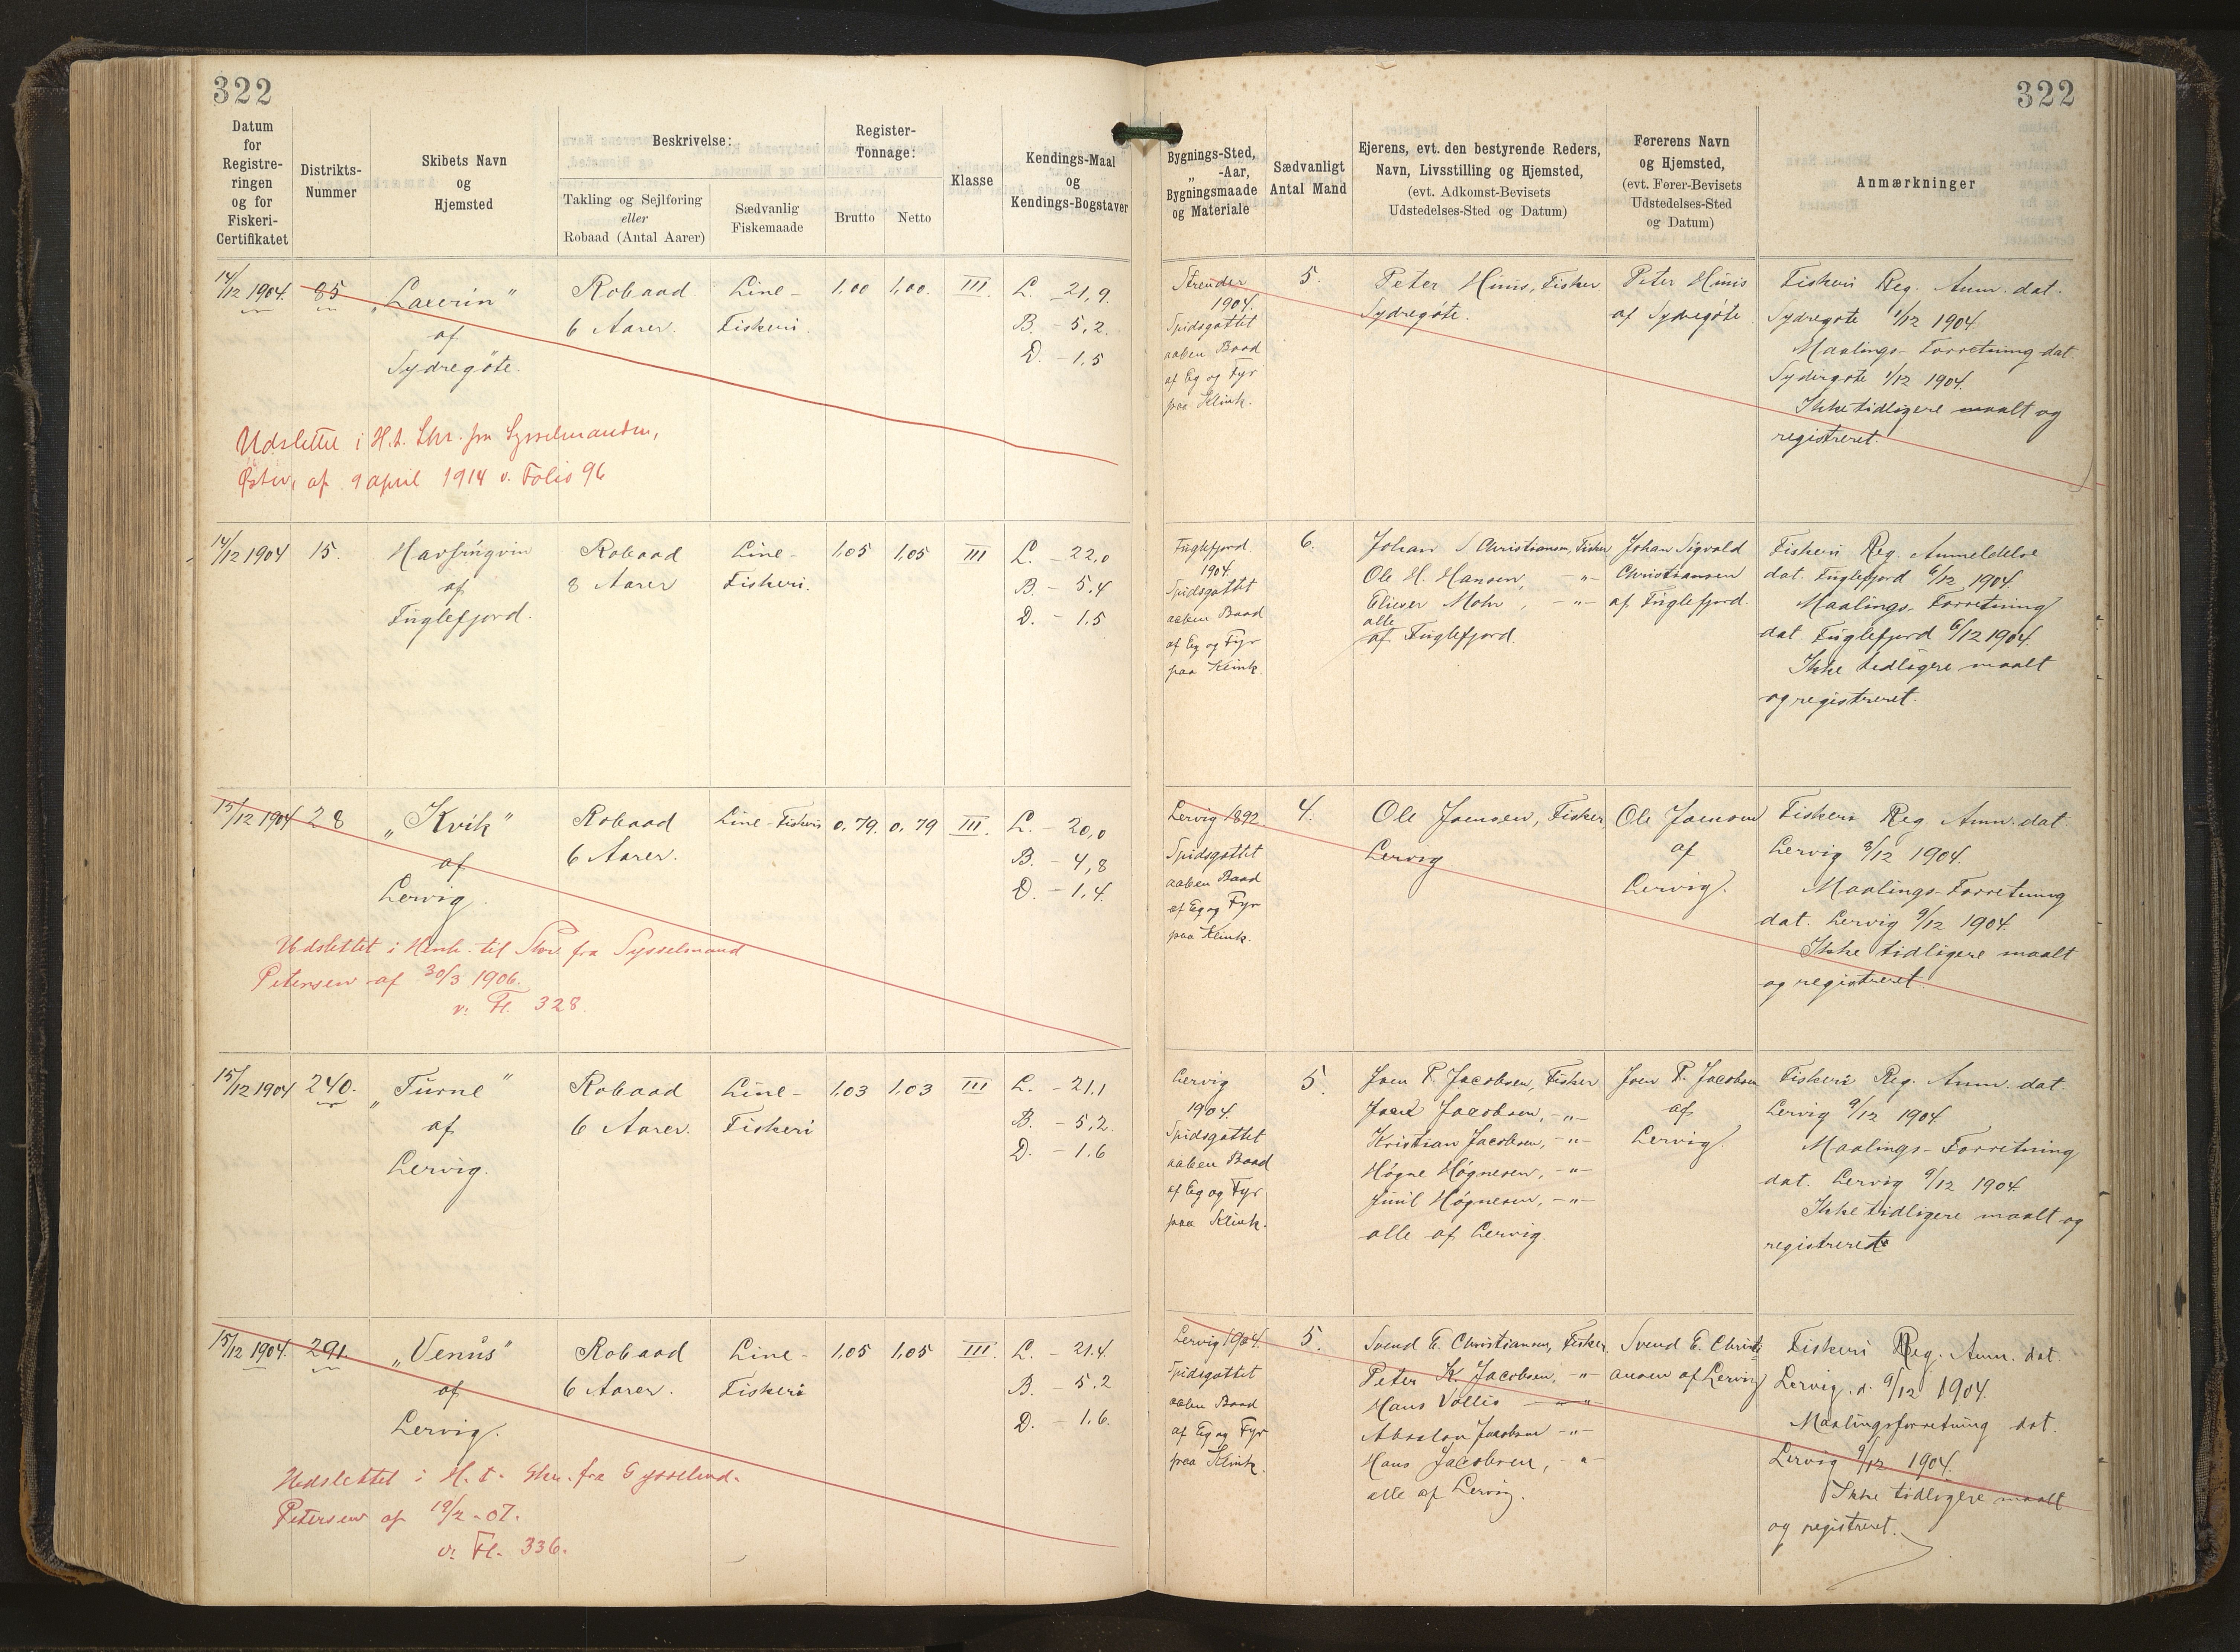 322
322
Datum
for
Registre-
ringen
og for
Fiskeri-
Certifikatet
Distrikts-
Nummer
Skibets Navn
og
Hjemsted
Beskrivelse:
Takling og Sejlføring
eller
Robaad (Antal Aarer)
Sædvanlig
Fiskemaade
Register-
Tonnage:
Brutto
Netto
Klasse
Kendings-Maal
og
Kendings-Bogstaver
Bygnings-Sted,
„ -Aar,
Bygningsmaade
og Materiale
Sædvanligt
Antal Mand
Ejerens, evt. den bestyrende Reders,
Navn, Livsstilling og Hjemsted,
(evt. Adkomst-Bevisets
Udstedelses-Sted og Datum)
Førerens Navn
og Hjemsted,
(evt. Fører-Bevisets
Udstedelses-Sted
og Datum)
Anmærkninger
14/12 1904.
85
af
Sydregöte.
Robaad
6 Aarer.
Line-
Fiskeri.
1,00
1,00.
III
L. - 21,9.
B. - 5,2.
D. - 1,5
Strender
1904.
Spidsgattet
aaben Baad
af Eg og Fyr
paa Klink.
5.
Peter Hinis, Fisker
Sydregöte.
Peter Hinis
af Sydregöte.
Fiskeri Reg. Anm. dat.
Sydregøte 1/12 1904.
Maalings-Forretning dat.
Sydregøte 1/12 1904.
Ikke tidligere maalt og
registreret.
Udslettet i H.t. Skr. fra Sysselmanden,
Østerø, af 9 april 1914 v. Folio 96
14/12 1904
15.
Havfrúgvin
af
Fuglefjord.
Robaad
8 Aarer
Line-
Fiskeri.
1,05
1,05
III
L. - 22,0
B. - 5,4
D. - 1,5
Fuglefjord
1904.
Spidsgattet
aaben Baad
af Eg og Fyr
paa Klink.
6.
Johan S Christiansen, Fisker
Ole H. Hansen, -"-
Elieser Mohr, -"-
alle
af Fuglefjord.
Johan Sigvald
Christiansen
af Fuglefjord.
Fiskeri Reg. Anmeldelse
dat. Fuglefjord 6/12 1904.
Maalings-Forretning
dat. Fuglefjord 6/12 1904.
Ikke tidligere maalt
og registreret.
15/12 1904
28
„Kvik"
af
Lervig.
Robaad
6 Aarer.
Line-Fiskeri
0,79.
0,79
III.
L. - 20,0
B. - 4,8
D. - 1,4.
Lervig 1892.
Spidsgattet
aaben Baad
af Eg og Fyr
paa Klink.
4.
Ole Joensen, Fisker
Lervig
Ole Joensen
af
Lervig.
Fiskeri Reg. Anm. dat.
Lervig 9/12 1904.
Maalings-Forretning
dat. Lervig 9/12 1904.
Ikke tidligere maalt
og registreret
Udslettet i Henh. til Skr. fra Sysselmand
Petersen af 30/3 1906.
v. Fl. 328.
15/12 1904
240.
„Turne"
af
Lervig.
Robaad
6 Aarer.
Line-
Fiskeri
1,03
1,03
III
L. - 21,1
B. - 5,2.
D. - 1,6
Lervig
1904.
Spidsgattet
aaben Baad
af Eg og Fyr
paa Klink.
5.
Joen P. Jacobsen, Fisker
Jacobsen, -"-
Kristian Jacobsen, -"-
Høgne Høgnesen, -"-
Høgnesen, -"-
alle af Lervig.
Joen P. Jacobsen
af
Lervig
Fiskeri Reg. Anm. dat.
Lervig 9/12 1904.
Maalings-Forretning
dat. Lervig 9/12 1904.
Ikke tidligere maalt og
registreret
15/12 1904.
291
„Venus"
af
Lervig.
Robaad
6 Aarer.
Line-
Fiskeri
1,05
1,05
III.
L. - 21,4.
B. - 5,2
D. - 1,6.
Lervig 1904.
Spidsgattet
aaben Baad
af Eg og Fyr
paa Klink.
5.
Svend E. Christiansen, Fisker.
Peter K. Jacobsen, -"-
Hans Vollis -"-
Absalon Jacobsen -"-
Hans Jacobsen, -"-
alle af Lervig.
Svend E. Christi-
ansen af Lervig
Fiskeri Reg. Anm. dat.
Lervig d. 9/12 1904.
Maalingsforretning dat.
Lervig 9/12 1904.
Ikke tidligere maalt
og registreret.
Udslettet i H. t. Skr. fra Sysselmd.
Petersen af 19/2-07.
v. Fl. 336.